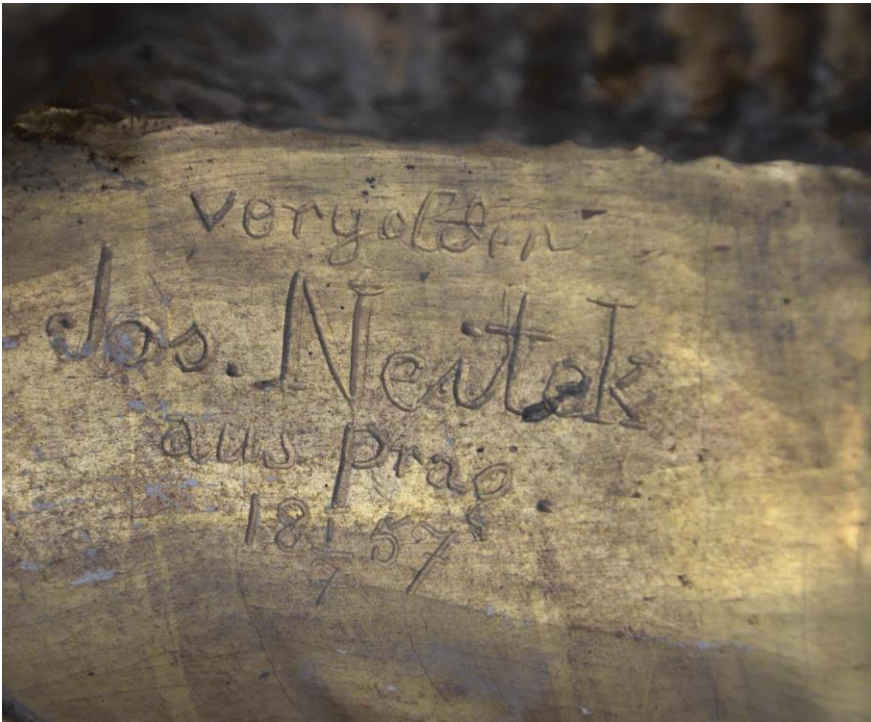 vergolden
Jos. Neitek
aus Prag
18 1/7 57